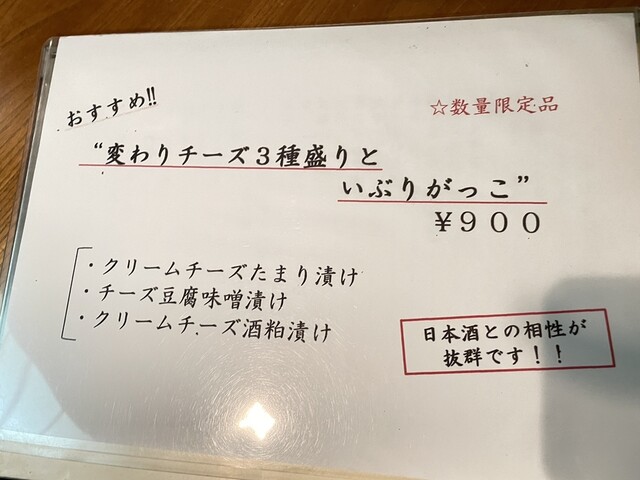 おすすめ!!
☆数量限定品
“変わりチーズ３種盛りと
いぶりがっこ”
￥９００
・クリームチーズたまり漬け
・チーズ豆腐味噌漬け
・クリームチーズ酒粕漬け
日本酒との相性が
抜群です！！